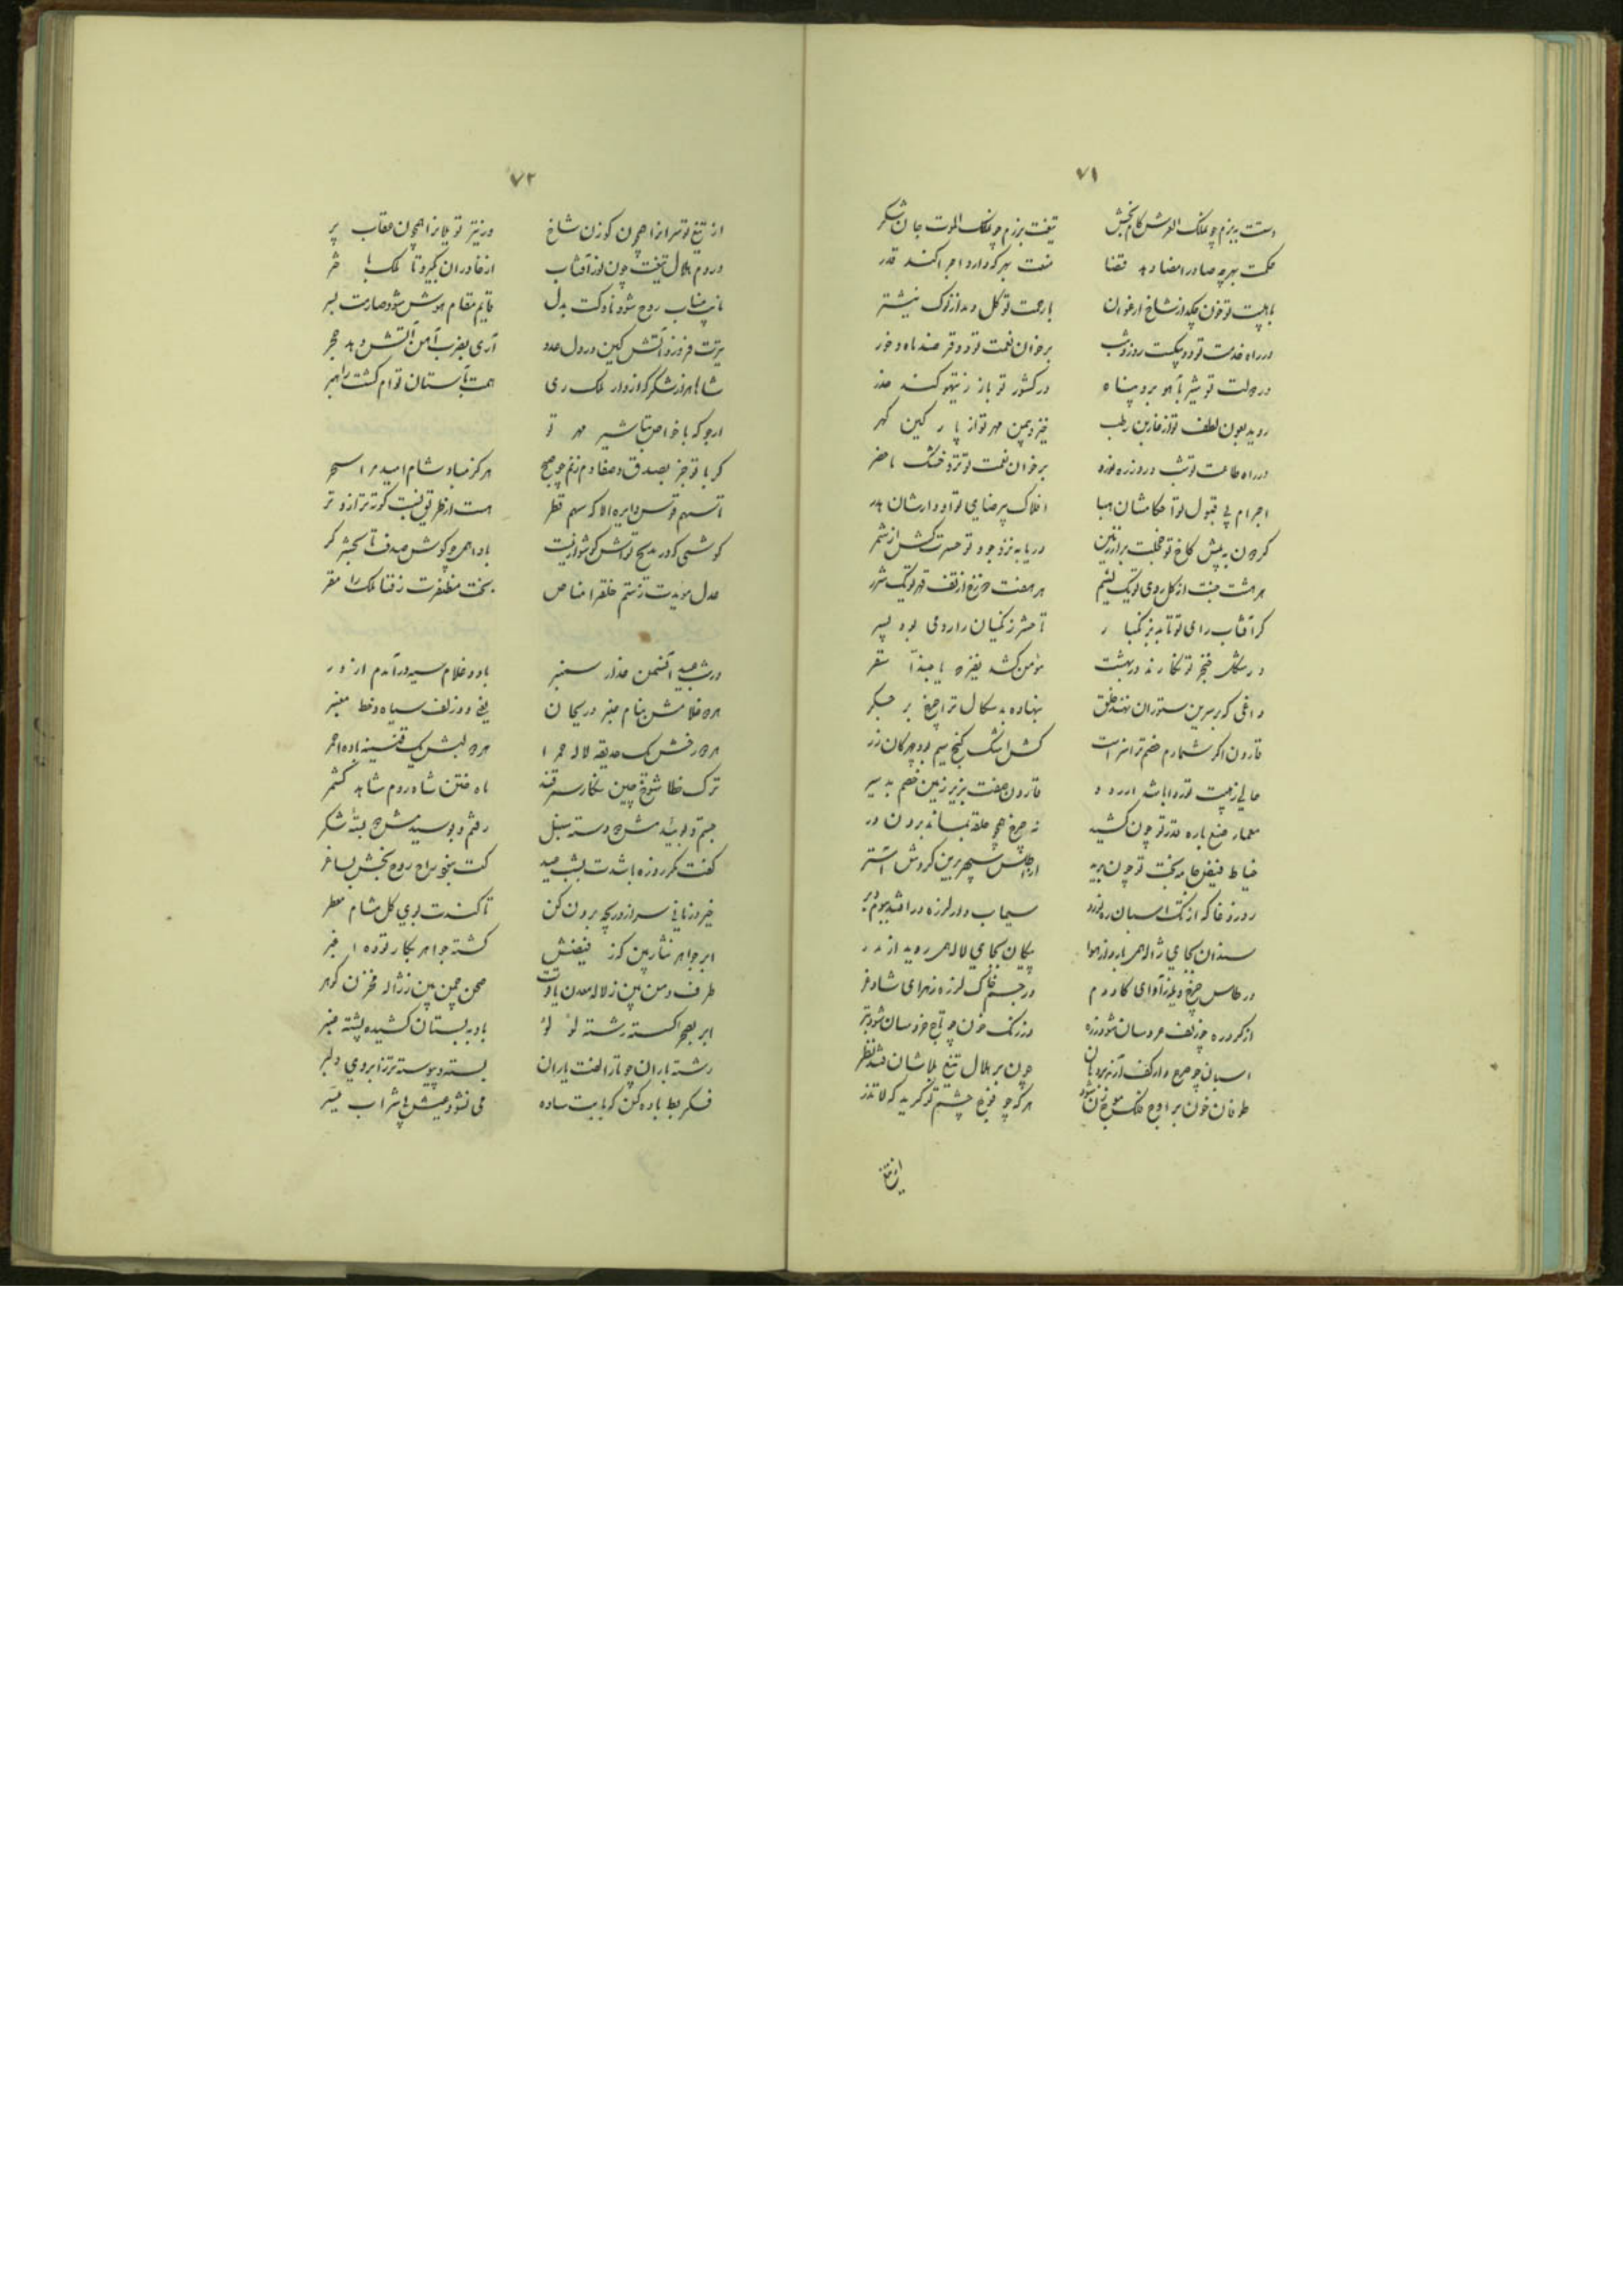 ۷۱
دستت ببزم چو ملک العرش کام بخش تیغت برزم چو ملک الموت جان شکر
حکمت بهرچه صادر امضا دهد قضا منعت بهرکه وارد اجرا کند قدر
با هیبت تو خون چکد از شاخ ارغوان با رحمت تو گل دمد از نوک نیشتر
در راه خدمت تو دو پیکست روز و شب بر خوان نعمت تو دو قرصند ماه و خور
در دولت تو شیر بآهو برد پناه در کشور تو باز ز تیهو کند حذر
روید بعون لطف تو از خار بن رطب خیزد بیمن مهر تو از پار کین گهر
در راه طاعت تو شب و روز ره نورد بر خوان نعمت تو تر و خشک ماحضر
اجرام پی قبول تو احکامشان هبا افلاک بیرضای تو ادوارشان هدر
گردون به پیش کاخ تو خجلت بر از زمین دریا به نزد جود تو حسرت کش از شمر
هر هشت جنت از گل روی تو یک نسیم هر هفت دوزخ از تف قهر تو یک شرر
گر آفتاب رای تو تابد بزنگبار تا حشر زنگیان را رومی بود پسر
در شکل خنجر تو نگارند در بهشت مؤمن کشد نعره یا حبذا سقر
داغی که بر سرین ستوران نهند خلق بنهاده بدسگال ترا چرخ بر جگر
قارون اگر شمارم خصم ترا سزاست کش اشک گنج سیم بود چهرکان زر
حالی ز هیبت تو قارون صفت بزیر زمین خصم بد سیر
معمار صنع باره قدر تو چون کشید نه چرخ همچو حلقه بماند برون در
خیاط فیض جامه بخت تو چون برید اطلس سپهر برین کردش آستر
روز وغا که از تک اسبان ره نورد سیماب وار لرزه در افتد ببوم و بر
سندان بجای ژاله همی بارد از هوا پیکان بجای لاله همی روید از مدر
در طاس چرخ ولوله ز آوای گاو دم در جسم خاک لرزه ز هرای شاد غر
از گرد ره چو زلف عروسان شود زره وز رنگ خون چو تاج خروسان شود تبر
چون بر هلال تیغ یلاشان فتد نظر
طوفان خون بر اوج فلک موج زن شود هرگه چو فوج چشم تو گرید که لا تذر
از تیغ
۷۲
از تیغ تو سرانرا همچون گوزن شاخ وز تیر تو یلانرا همچون عقاب پر
در روم هلال تیغت چون نور آفتاب از خاوران بگیرد تا ملک باختر
نایب مناب روح شود ناوکت بدل قایم مقام هوش شود صارمت بسر
تیرت فروزد آتش کین در دل عدو آری بضرب آهن آتش دهد حجر
شاها هزار شکر کز ادوار ملک ری همت بآستان توام گشت راهبر
ارجو که با خواص تباشیر مهر تو
گر با تو جز بصدق و صفا دم زنم چو صبح هرگز مباد شام امید مرا سحر
تا سهم قوس دایره الا که سهم قطر هست از طریق نسبت کوته‌تر از وتر
گوشی که در مدیح تواش گوشوار نیست بادا همی چو گوش صدف تا بحشر کر
عدل مؤیدت ز ستم خلق را مناص بخت مظفرت ز فنا ملک را مقر
در شب عید آن سمن عذار سمنبر با دو غلام سیه درآمد از در
هر دو غلامش بنام عنبر و ریحان یعنی دو زلف سیاه و خط معنبر
هر دو رخش یک حدیقه لاله حمرا هر دو لبش یک قنینه باده احمر
ترک خطا شوخ چین نگار سمرقند ماه ختن شاه روم شاهد کشمر
جستم و بوئیدمش دو دسته سنبل رفتم و بوسیدمش دو بسته شکر
گفت مگر روزه باشدت بشب عید گفت بخور راح روح بخش بساغر
خیز و زمانی سر از دریچه برون کن تا کندت بوی گل مشام معطر
ابر جواهر نثار بین کز فیضش گشته جواهر نگار توده اغبر
طرف دمن بین ز لاله معدن یاقوت صحن چمن بین ز ژاله مخزن گوهر
ابر بصحرا گسسته رشته لؤلؤ باد به بستان کشیده پشته عنبر
رشته باران چو تار الفت یاران بسته و پیوسته تر ز ابروی دلبر
فکر بط باده کن که با بت ساده می نشود عیش بی شراب میسر